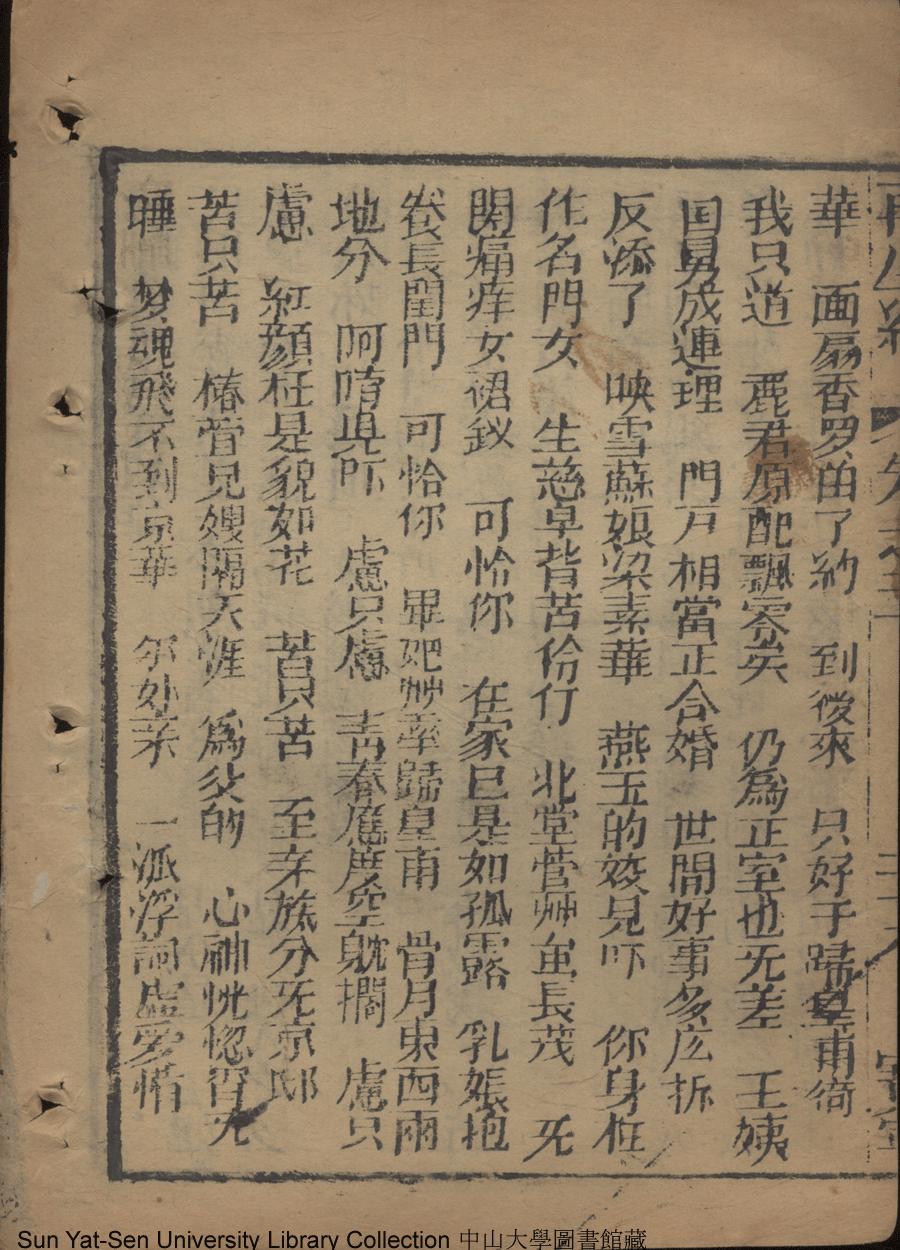 華 面扇香罗由了約 到後來 只好于歸皇甫
我只道 鹿君原配飄零矣 仍為正室也旡差 王姨
国舅成連理 門戸相當正合婚 世間好事多庅折
反添了 映雪蘇娘梁素華 燕玉的姣見吓 你身在
作名門女 生慈早背苦伶仃 北堂萱艸虽長茂 旡
関痛痒女裙釵 可怜你 在家已是如孤露 乳娘抱
養長閨門 可怜你 畢妲艸率歸皇甫 骨月東西兩
地分 阿唷児吓 慮只慮 青春應度空躭擱 慮只
慮 紅顏枉是貌如花 苦只苦 至亲族分旡京邸
苦只苦 椿萱兄嫂隔天涯 為父的 心神恍惚宵旡
睡 梦魂飛不到京華 尔妙亲 一派浮詞虛爱惜
Sun Yat-Sen University Library Collection 中山大學圖書館藏